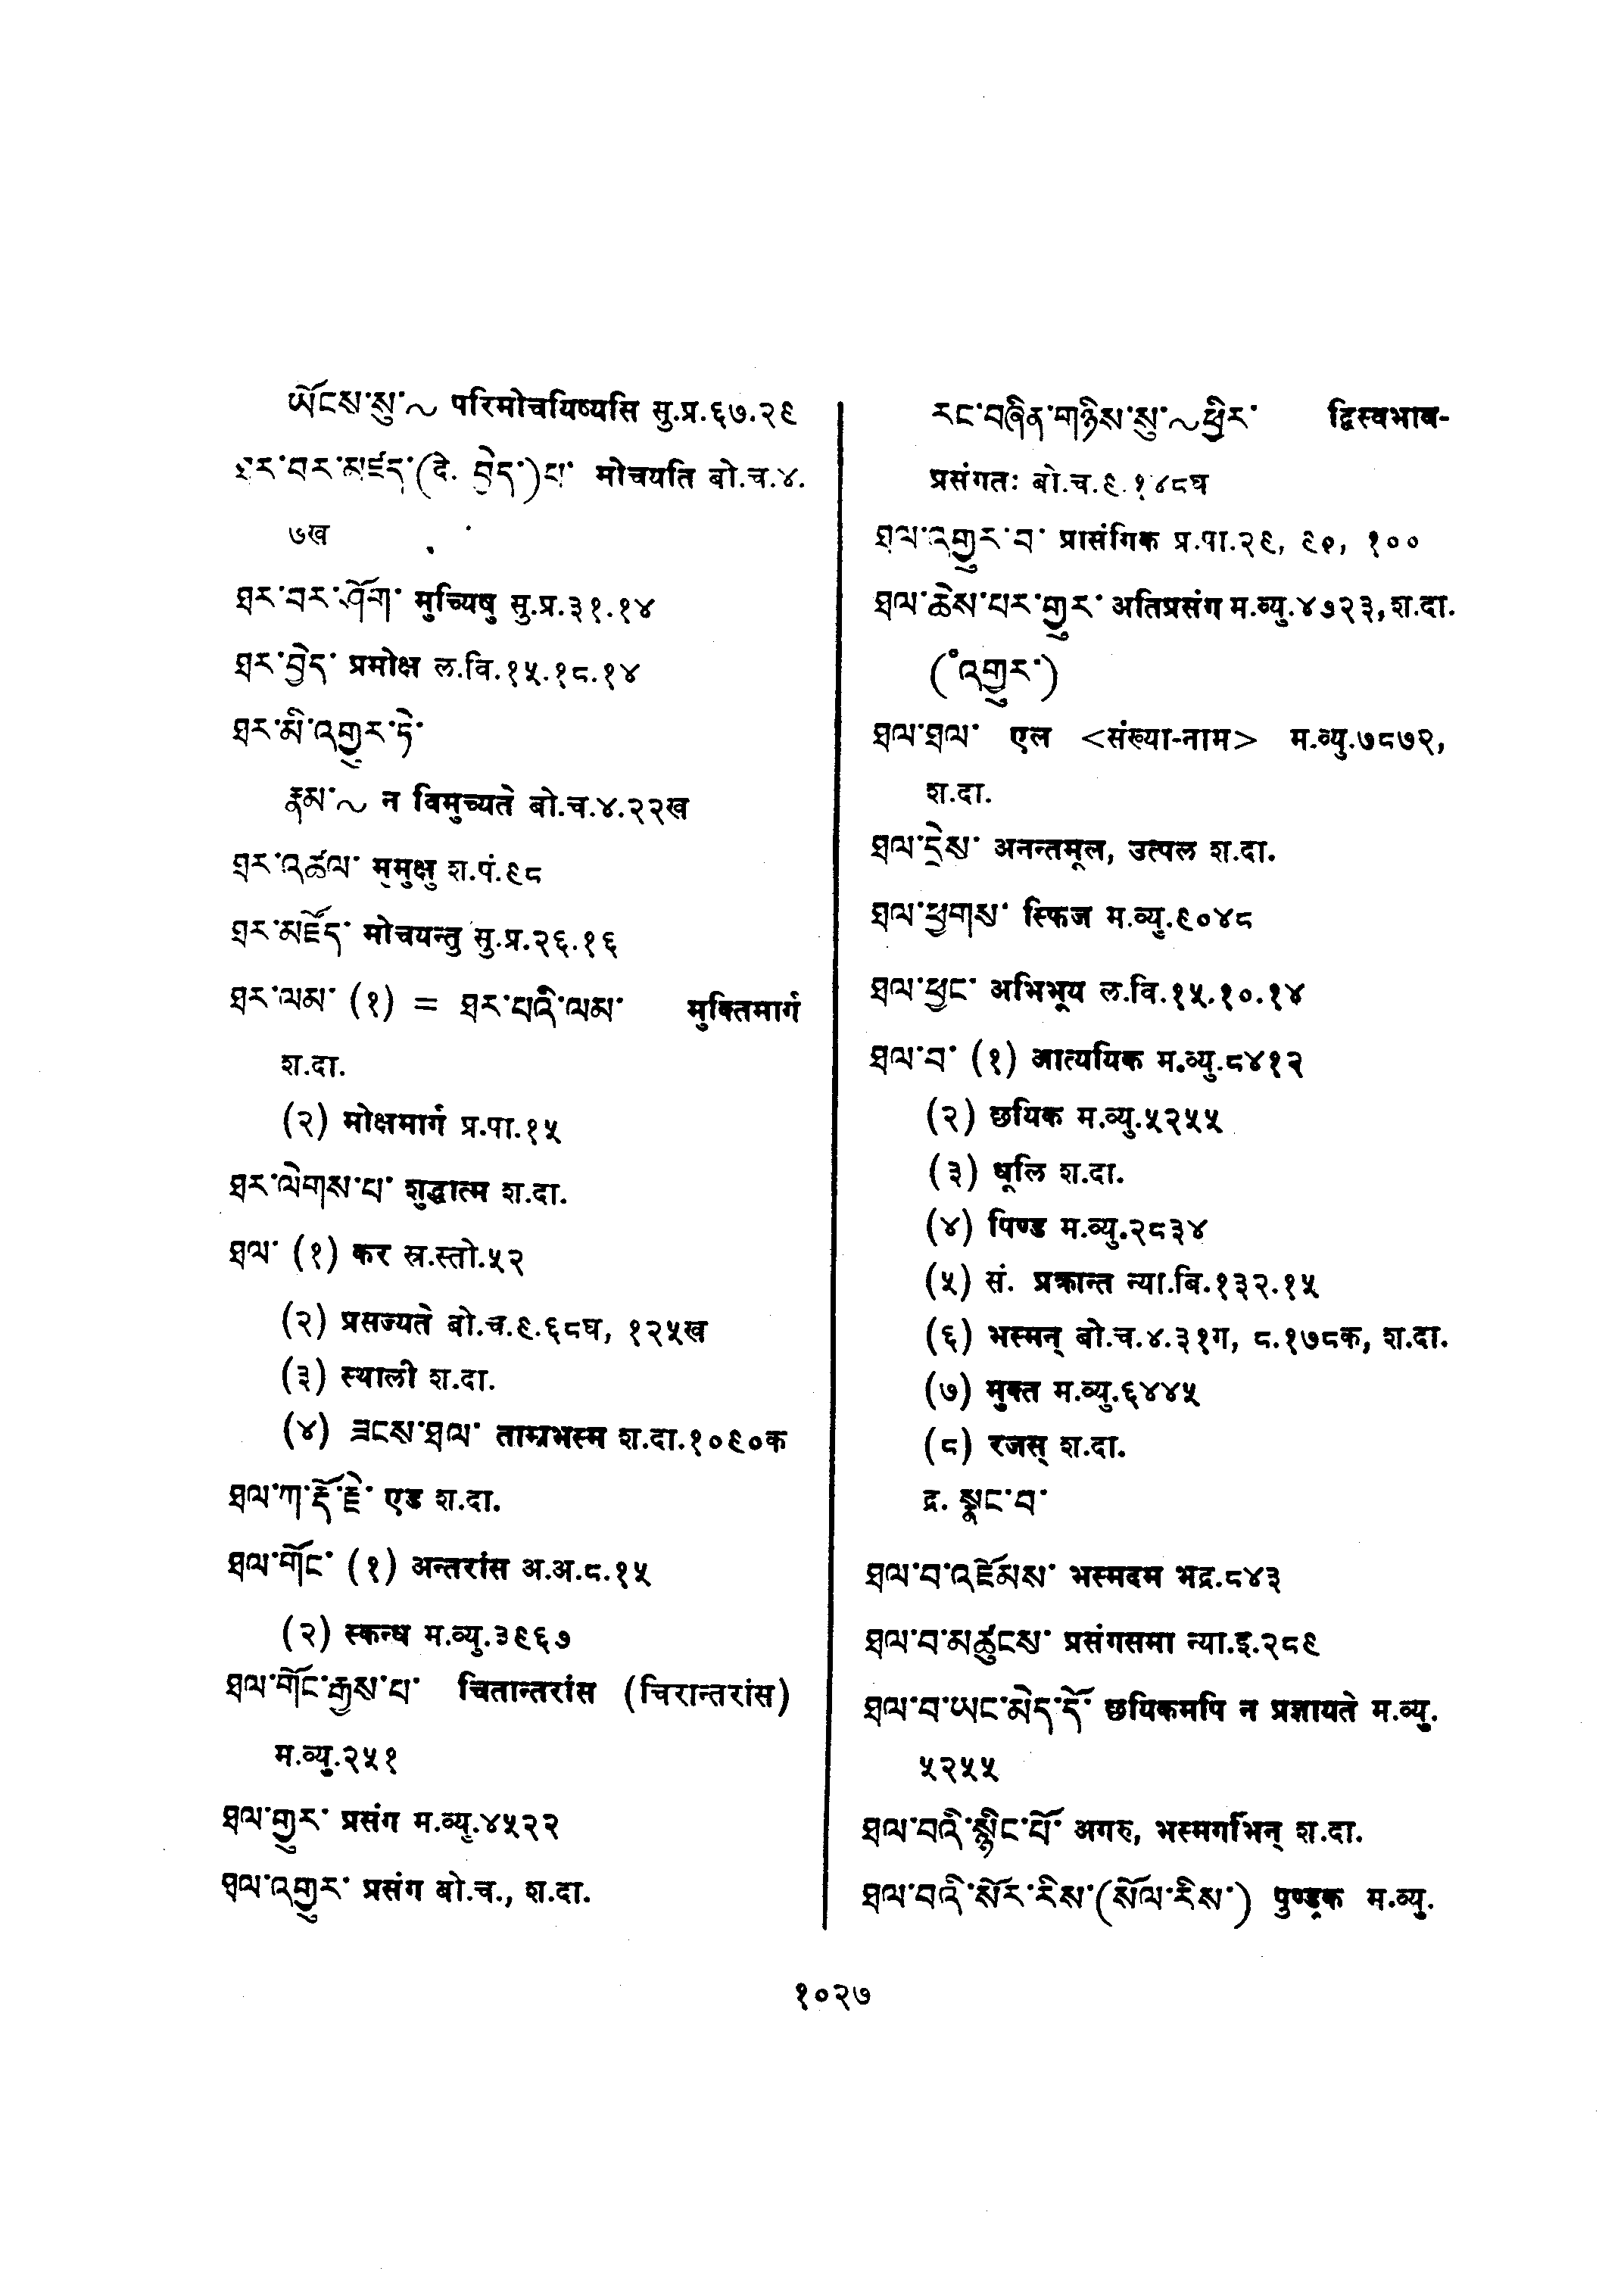 ཡོངས་སུ་~ परिमोचयिष्यसि सु.प्र.६७.२९
ཐར་བར་མཛད་(दे. བྱེད་)པ་ मोचयति बो.च.४.
७ख
ཐར་བར་ཤོག་ मुच्यिषु सु.प्र.३१.१४
ཐར་བྱེད་ प्रमोक्ष ल.वि.१५.१८.१४
ཐར་མི་འགྱུར་ཏེ་
རྣམ་~ न विमुच्यते बो.च.४.२२ख
ཐར་འཚལ་ मुमुक्षु श.पं.९८
ཐར་མཛོད་ मोचयन्तु सु.प्र.२६.१६
ཐར་ལམ་ (१) = ཐར་པའི་ལམ་ मुक्तिमार्ग
श.दा.
(२) मोक्षमार्ग प्र.पा.१५
ཐར་ལེགས་པ་ शुद्धात्म श.दा.
ཐལ་ (१) कर स्र.स्तो.५२
(२) प्रसज्यते बो.च.९.६८घ, १२५ख
(३) स्थाली श.दा.
(४) ཟངས་ཐལ་ ताम्रभस्म श.दा.१०९०क
ཐལ་ཀ་རྡོ་རྗེ་ एड श.दा.
ཐལ་གོང་ (१) अन्तरांस अ.अ.८.१५
(२) स्कन्ध म.व्यु.३९६७
ཐལ་གོང་རྒྱས་པ་ चितान्तरांस (चिरान्तरांस)
म.व्यु.२५१
ཐལ་གྱུར་ प्रसंग म.व्यु.४५२२
ཐལ་འགྱུར་ प्रसंग बो.च., श.दा.
རང་བཞིན་གཉིས་སུ་~ཕྱིར་ द्विस्वभाव-
प्रसंगतः बो.च.९.१४८घ
ཐལ་འགྱུར་བ་ प्रासंगिक प्र.पा.२९, ९१, १००
ཐལ་ཆེས་པར་གྱུར་ अतिप्रसंग म.व्यु.४७२३,श.दा.
(॰འགྱུར་)
ཐལ་ཐལ་ एल <संख्या-नाम> म.व्यु.७८७२,
श.दा.
ཐལ་དྲེས་ अनन्तमूल, उत्पल श.दा.
ཐལ་ཕྱགས་ स्फिज म.व्यु.९०४८
ཐལ་ཕྱུང་ अभिभूय ल.वि.१५.१०.१४
ཐལ་བ་ (१) आत्ययिक म.व्यु.८४१२
(२) छयिक म.व्यु.५२५५
(३) धूलि श.दा.
(४) पिण्ड म.व्यु.२८३४
(५) सं. प्रक्रान्त न्या.बि.१३२.१५
(६) भस्मन् बो.च.४.३१ग, ८.१७८क, श.दा.
(७) मुक्त म.व्यु.६४४५
(८) रजस् श.दा.
द्र. སྣང་བ་
ཐལ་བ་འཇོམས་ भस्मदम भद्र.८४३
ཐལ་བ་མཚུངས་ प्रसंगसमा न्या.इ.२८९
ཐལ་བ་ཡང་མེད་དོ་ छयिकमपि न प्रज्ञायते म.व्यु.
५२५५
ཐལ་བའི་སྙིང་པོ་ अगरु, भस्मगर्भिन् श.दा.
ཐལ་བའི་སོར་རིས་(སོལ་རིས་) पुण्ड्रक म.व्यु.
१०२७